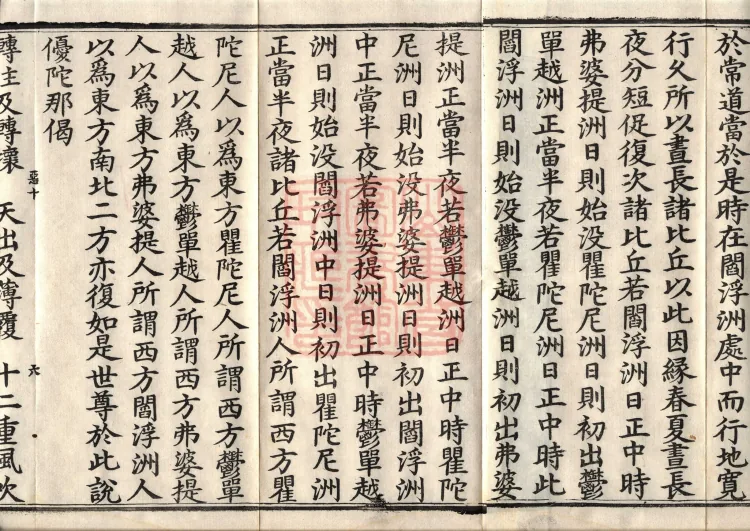 於常道當於是時在閻浮洲處中而行地寬
行久所以晝長諸比丘以此因緣春夏晝長
夜分短促復次諸比丘若閻浮洲日正中時
弗婆提洲日則始没瞿陀尼洲日則初出鬱
單越洲正當半夜若瞿陀尼洲日正中時此
閻浮洲日則始没鬱單越洲日則初出弗婆
提洲正當半夜若鬱單越洲日正中時瞿陀
尼洲日則始没弗婆提洲日則初出閻浮洲
中正當半夜若弗婆提洲日正中時鬱單越
洲日則始没閻浮洲中日則初出瞿陀尼洲
正當半夜諸比丘若閻浮洲人所謂西方瞿
陀尼人以爲東方瞿陀尼人所謂西方鬱單
越人以爲東方鬱單越人所謂西方弗婆提
人以爲東方弗婆提人所謂西方閻浮洲人
以爲東方南北二方亦復如是世尊於此說
優陀那偈
惡十 六
轉住及轉壞 天出及薄覆 十二重風吹